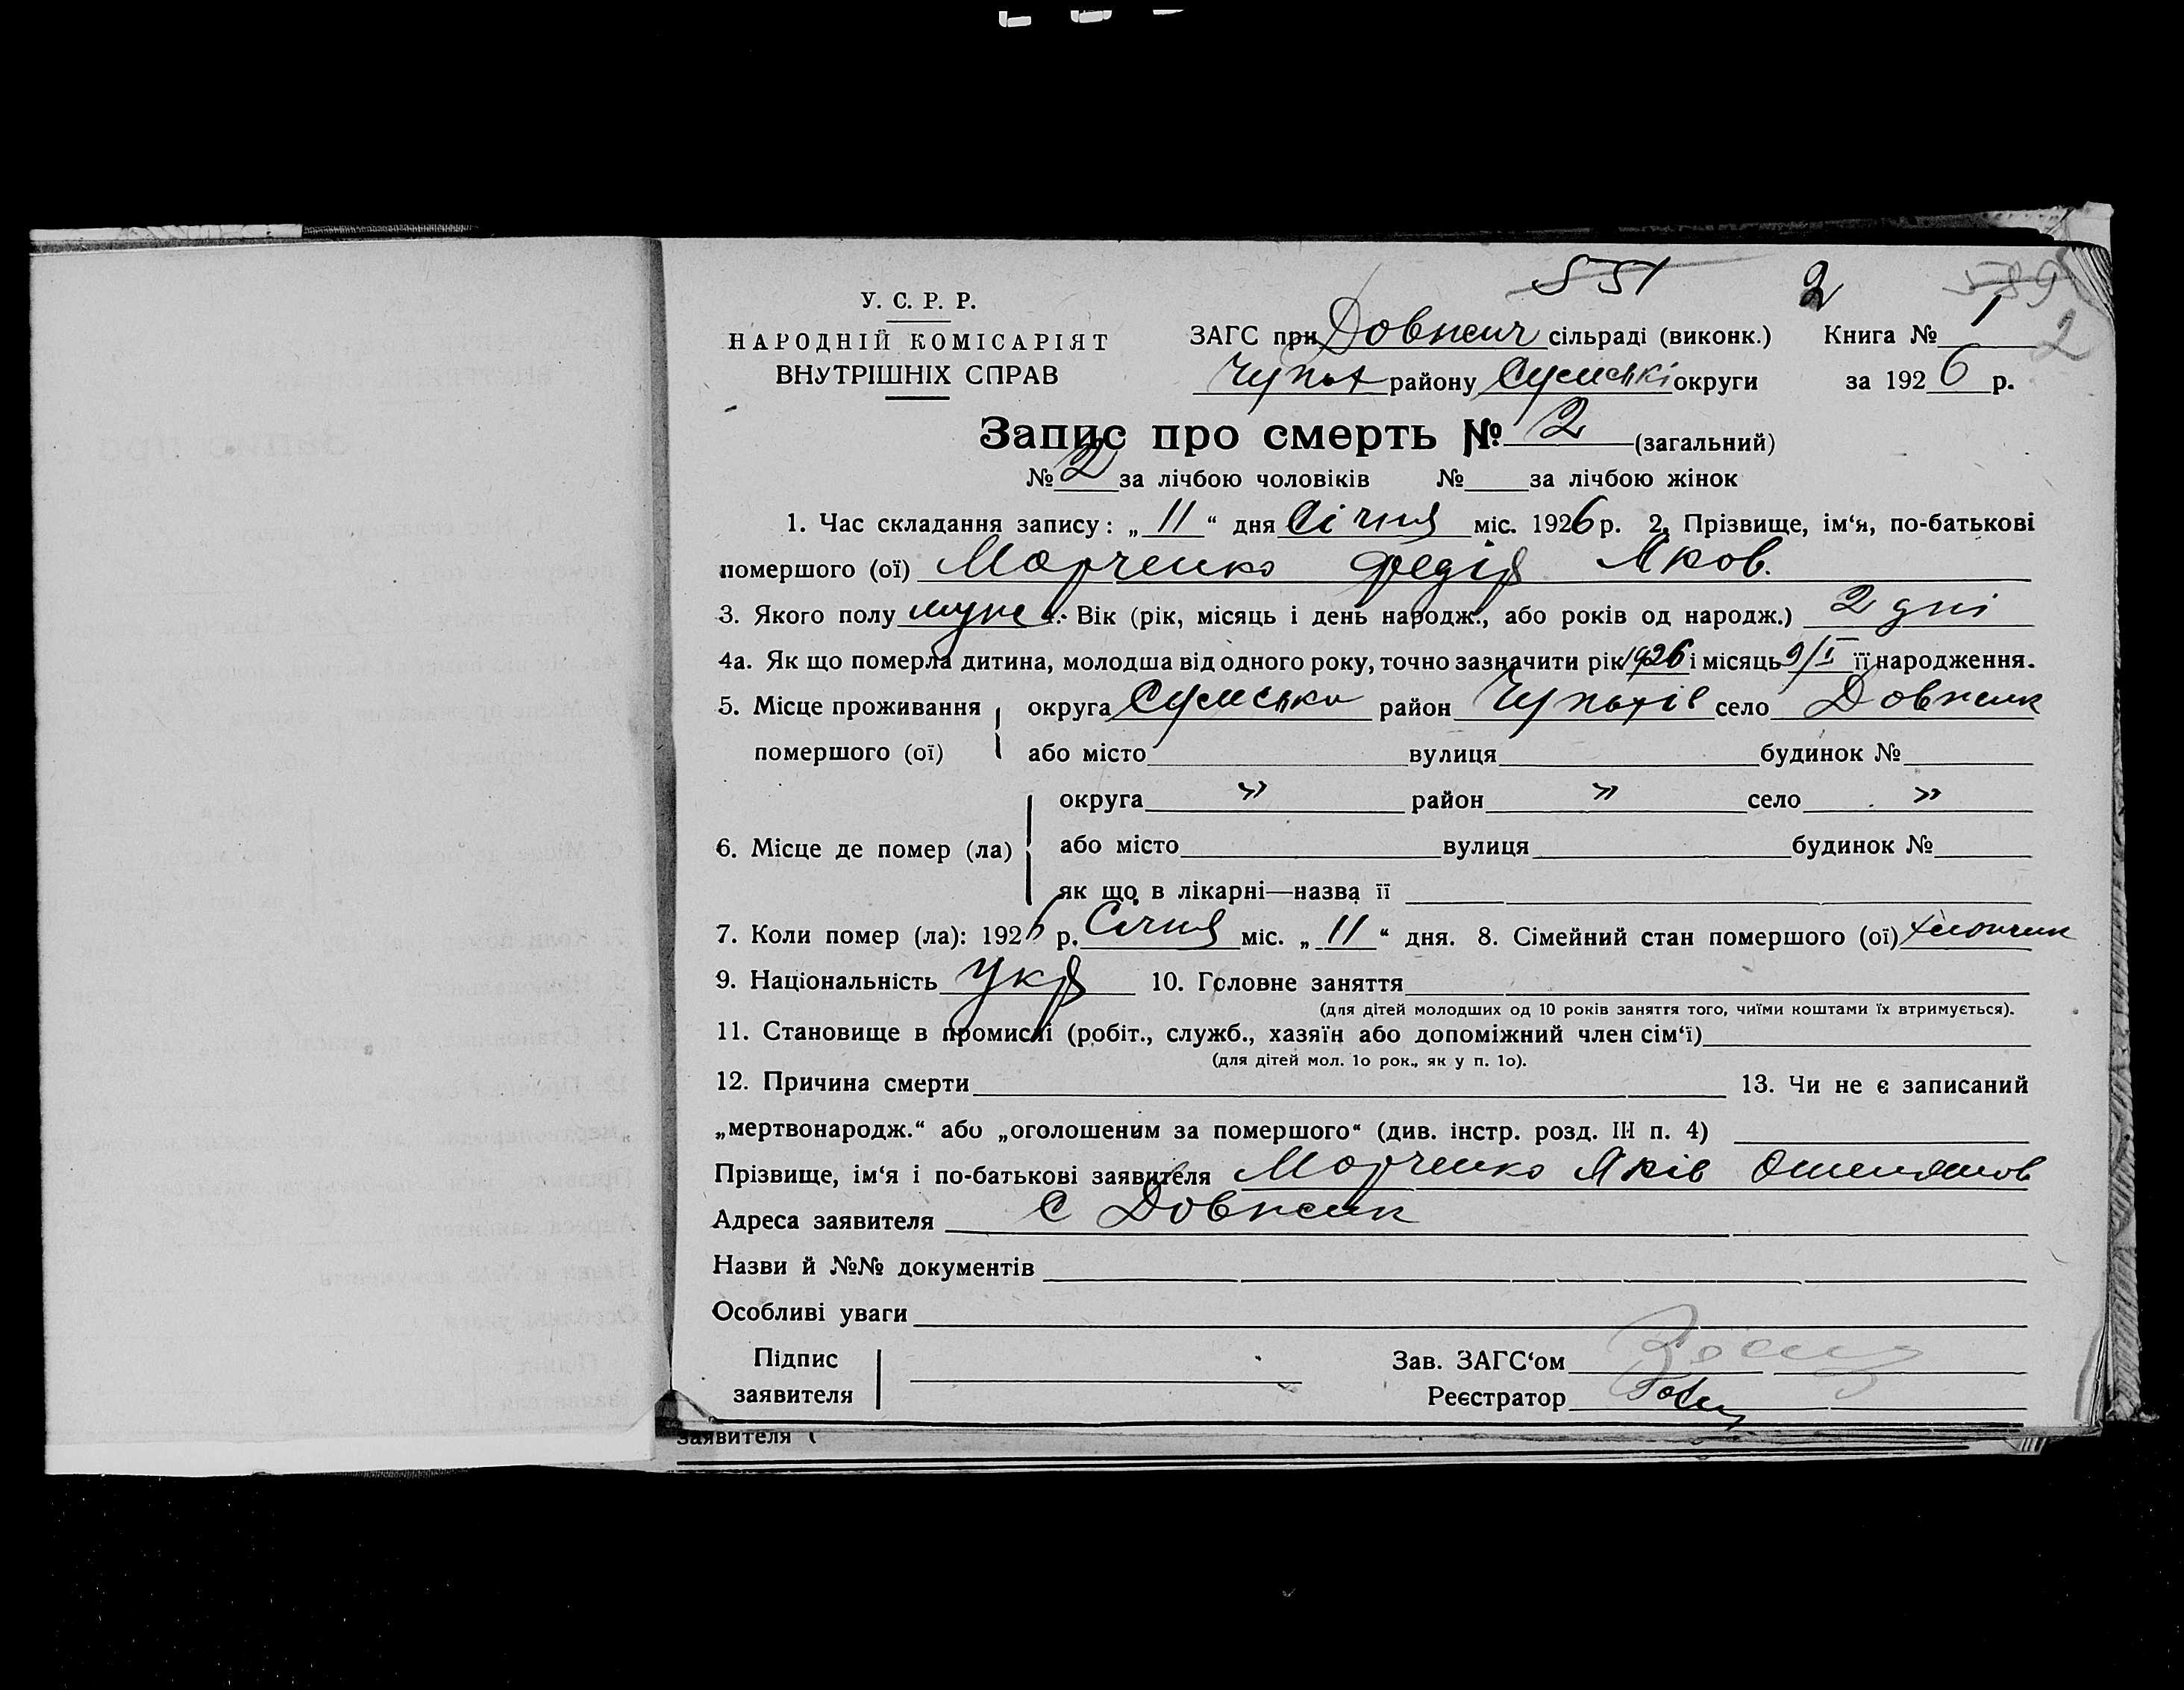 551 2 589
У. С. Р. Р.
НАРОДНІЙ КОМІСАРІЯТ
ВНУТРІШНІХ СПРАВ
ЗАГС при Довжич сільраді (виконк.) Книга № 1 2
Чупах району Сумські округи за 1926 р.
Запис про смерть № 2 (загальний)
№ 2 за лічбою чоловіків № за лічбою жінок
1. Час складання запису: „ 11 “ дня Січня міс. 1926 р. 2, Прізвище, ім‘я, по-батькові
помершого (ої) Марченко Федір Яков.
3. Якого полу муж 4. Вік (рік, місяць і день народж., або років од народж.) 2 дні
4а. Як що померла дитина, молодша від одного року, точно зазначити рік 1926 і місяць 9/I її народження.
5. Місце проживання округа Сумська район Чупахів село Довжик
помершого (ої) або місто вулиця будинок №
округа » район » село »
6. Місце де помер (ла) або місто вулиця будинок №
як що в лікарні—назва її
7. Коли помер (ла): 1926 р. Січня міс. „ 11 “ дня. 8. Сімейний стан помершого (ої) хлопчик
9. Національність Укр 10. Головне заняття
(для дітей молодших од 10 років заняття того, чиїми коштами їх втримується).
11. Становище в промислі (робіт., служб., хазяїн або допоміжний член сім‘ї)
(для дітей мол. 1о рок., як у п. 1о).
12. Причина смерти 13. Чи не є записаний
„мертвонародж.“ або „оголошеним за помершого“ (див. інстр. розд. III п. 4)
Прізвище, ім‘я і по-батькові заявителя Марченко Яків
Адреса заявителя С Довжик
Назви й №№ документів
Особливі уваги
Підпис Зав. ЗАГС‘ом
заявителя Реєстратор
заявителя